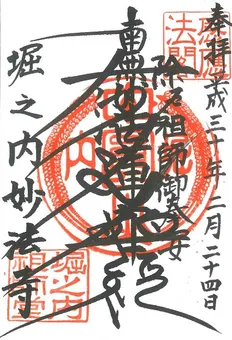 奉拝 平成三十年二月二十四日
除厄祖師御奉安
南無妙法蓮華経
堀之内妙法寺
堀之内